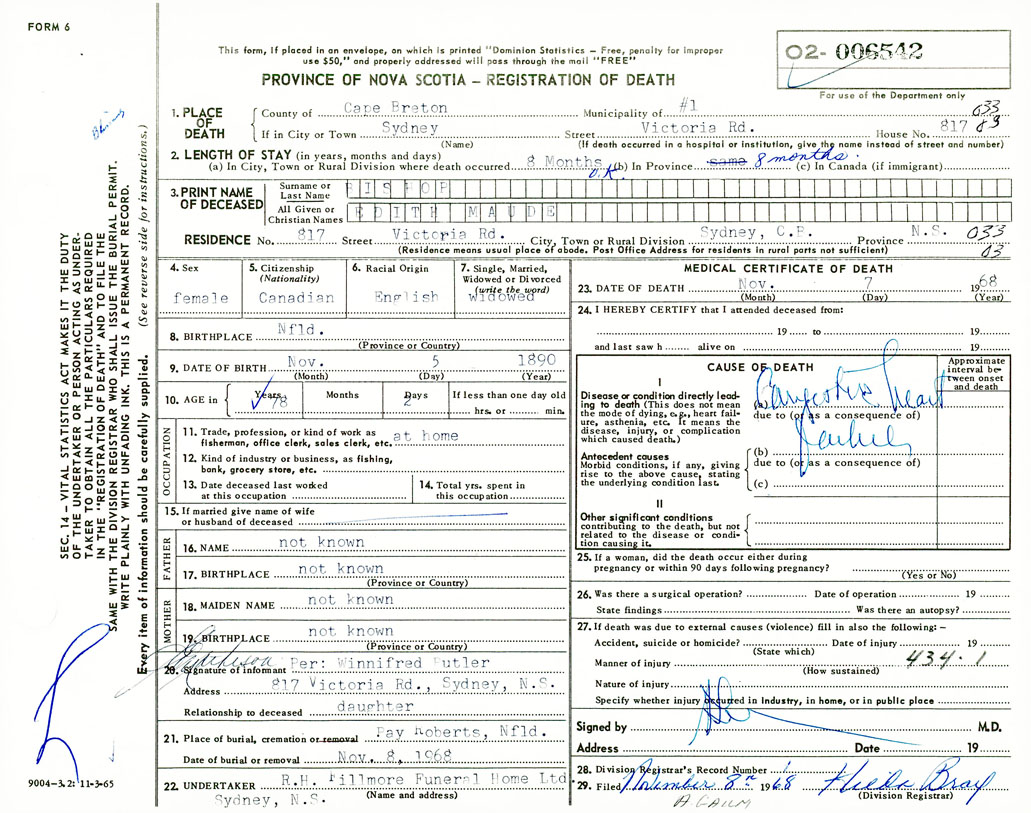 FORM 6
This form, if placed in an envelope, on which is printed "Dominion Statistics – Free, penalty for improper
use $50," and properly addressed will pass through the mail "FREE"
PROVINCE OF NOVA SCOTIA – REGISTRATION OF DEATH
02- 006542
For use of the Department only
1. PLACE OF DEATH
County of Cape Breton Municipality of #1 033
If in City or Town Sydney Street Victoria Rd. House No. 817 03
(Name) (If death occurred in a hospital or institution, give the name instead of street and number)
2. LENGTH OF STAY (in years, months and days)
(a) In City, Town or Rural Division where death occurred 8 Months (b) In Province same 8 months. (c) In Canada (if immigrant)
O.K.
3. PRINT NAME OF DECEASED
Surname or Last Name BISHOP
All Given or Christian Names EDITH MAUDE
RESIDENCE No. 817 Street Victoria Rd. City, Town or Rural Division Sydney, C.B. Province N.S. 033
(Residence means usual place of abode. Post Office Address for residents in rural parts not sufficient) 03
4. Sex
female
5. Citizenship (Nationality)
Canadian
6. Racial Origin
English
7. Single, Married, Widowed or Divorced (write the word)
widowed
8. BIRTHPLACE Nfld.
(Province or Country)
9. DATE OF BIRTH Nov. 5 1890
(Month) (Day) (Year)
10. AGE in Years 78 Months Days 2 If less than one day old hrs. or min.
OCCUPATION
11. Trade, profession, or kind of work as fisherman, office clerk, sales clerk, etc. at home
12. Kind of industry or business, as fishing, bonk, grocery store, etc.
13. Date deceased last worked at this occupation
14. Total yrs. spent in this occupation
15. If married give name of wife or husband of deceased
FATHER
16. NAME not known
17. BIRTHPLACE not known
(Province or Country)
MOTHER
18. MAIDEN NAME not known
19. BIRTHPLACE not known
(Province or Country)
20. Signature of informant Per: Winnifred Butler
Address 817 Victoria Rd., Sydney, N.S.
Relationship to deceased daughter
21. Place of burial, cremation or removal Bay Roberts, Nfld.
Date of burial or removal Nov. 8, 1968
22. UNDERTAKER R.H. Fillmore Funeral Home Ltd.
Sydney, N.S. (Name and address)
MEDICAL CERTIFICATE OF DEATH
23. DATE OF DEATH Nov. 7 1968
(Month) (Day) (Year)
24. I HEREBY CERTIFY that I attended deceased from:
19 to 19
and last saw h alive on 19
CAUSE OF DEATH
Approximate interval between onset and death
I
Disease or condition directly leading to death (This does not mean the mode of dying, e.g., heart failure, asthenia, etc. It means the disease, injury, or complication which caused death.)
(a) Congestive Heart
due to (or as a consequence of)
Failure
Antecedent causes
Morbid conditions, if any, giving rise to the above cause, stating the underlying condition last.
(b)
due to (or as a consequence of)
(c)
II
Other significant conditions contributing to the death, but not related to the disease or condition causing it.
25. If a woman, did the death occur either during pregnancy or within 90 days following pregnancy?
(Yes or No)
26. Was there a surgical operation? Date of operation 19
State findings Was there an autopsy?
27. If death was due to external causes (violence) fill in also the following: –
Accident, suicide or homicide? Date of injury 19
(State which) 434.1
Manner of injury
(How sustained)
Nature of injury
Specify whether injury occurred in industry, in home, or in public place
Signed by M.D.
Address Date 19
28. Division Registrar's Record Number
29. Filed November 8th 1968 Hilda Bray
(Division Registrar)
SEC. 14 – VITAL STATISTICS ACT MAKES IT THE DUTY
OF THE UNDERTAKER OR PERSON ACTING AS UNDER-
TAKER TO OBTAIN ALL THE PARTICULARS REQUIRED
IN THE "REGISTRATION OF DEATH" AND TO FILE THE
SAME WITH THE DIVISION REGISTRAR WHO SHALL ISSUE THE BURIAL PERMIT.
WRITE PLAINLY WITH UNFADING INK. THIS IS A PERMANENT RECORD.
Every item of information should be carefully supplied. (See reverse side for instructions.)
9004–3.2: 11-3-65